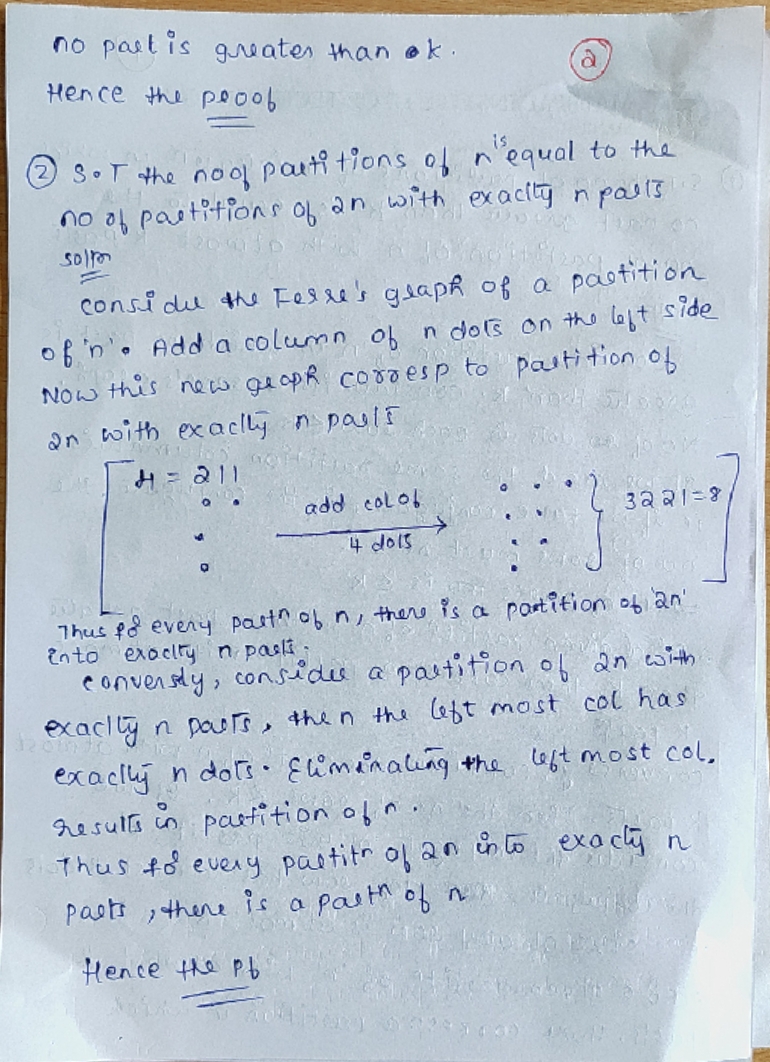 no part is greater than k.
2
Hence the proof
2 S.T the no of partitions of n is equal to the
no of partitions of 2n with exactly n parts
soltn
consider the Ferre's graph of a partition
of 'n'. Add a column of n dots on the left side
Now this new graph corresp to partition of
2n with exactly n parts
4 = 211
add col of
4 dots
3221=8
Thus for every partn of n, there is a partition of '2n'
into exactly n parts.
conversly, consider a partition of 2n with
exactly n parts, then the left most col has
exactly n dots. Eliminating the left most col.
results in partition of n.
Thus for every partitn of 2n into exactly n
parts, there is a partn of n
Hence the pf